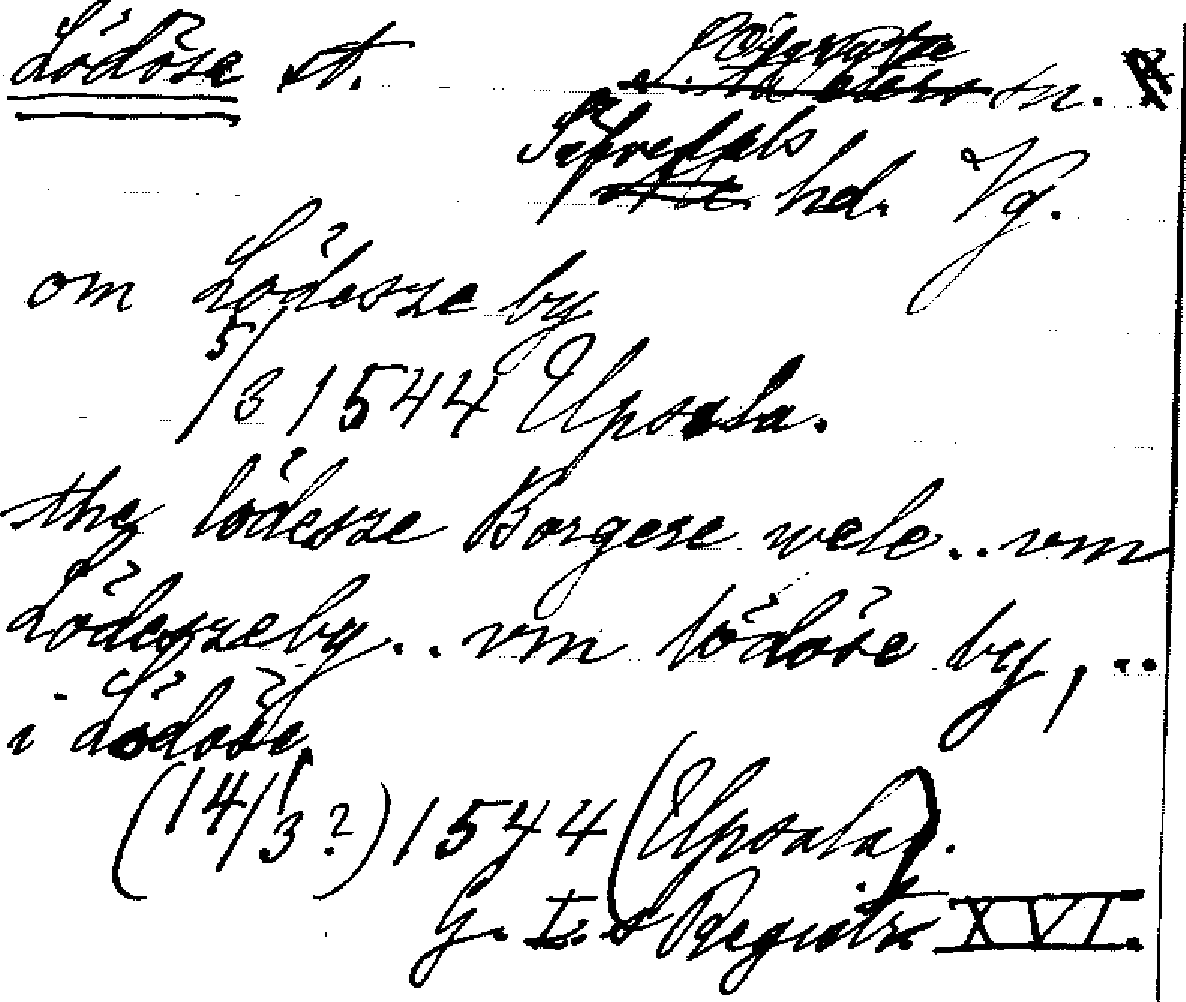 Lödöse st. S. Peders sn.
Flundre
Ale hd. Vg.
om Lödesze by
5/3 1544 Upsala.
the lödesze Borgere wele .. vm
Lödeszeby .. vm lödöse by, ..
i Lödöse
(14/3?) 1544 (Upsala).
G. I:s Registr. XVI.